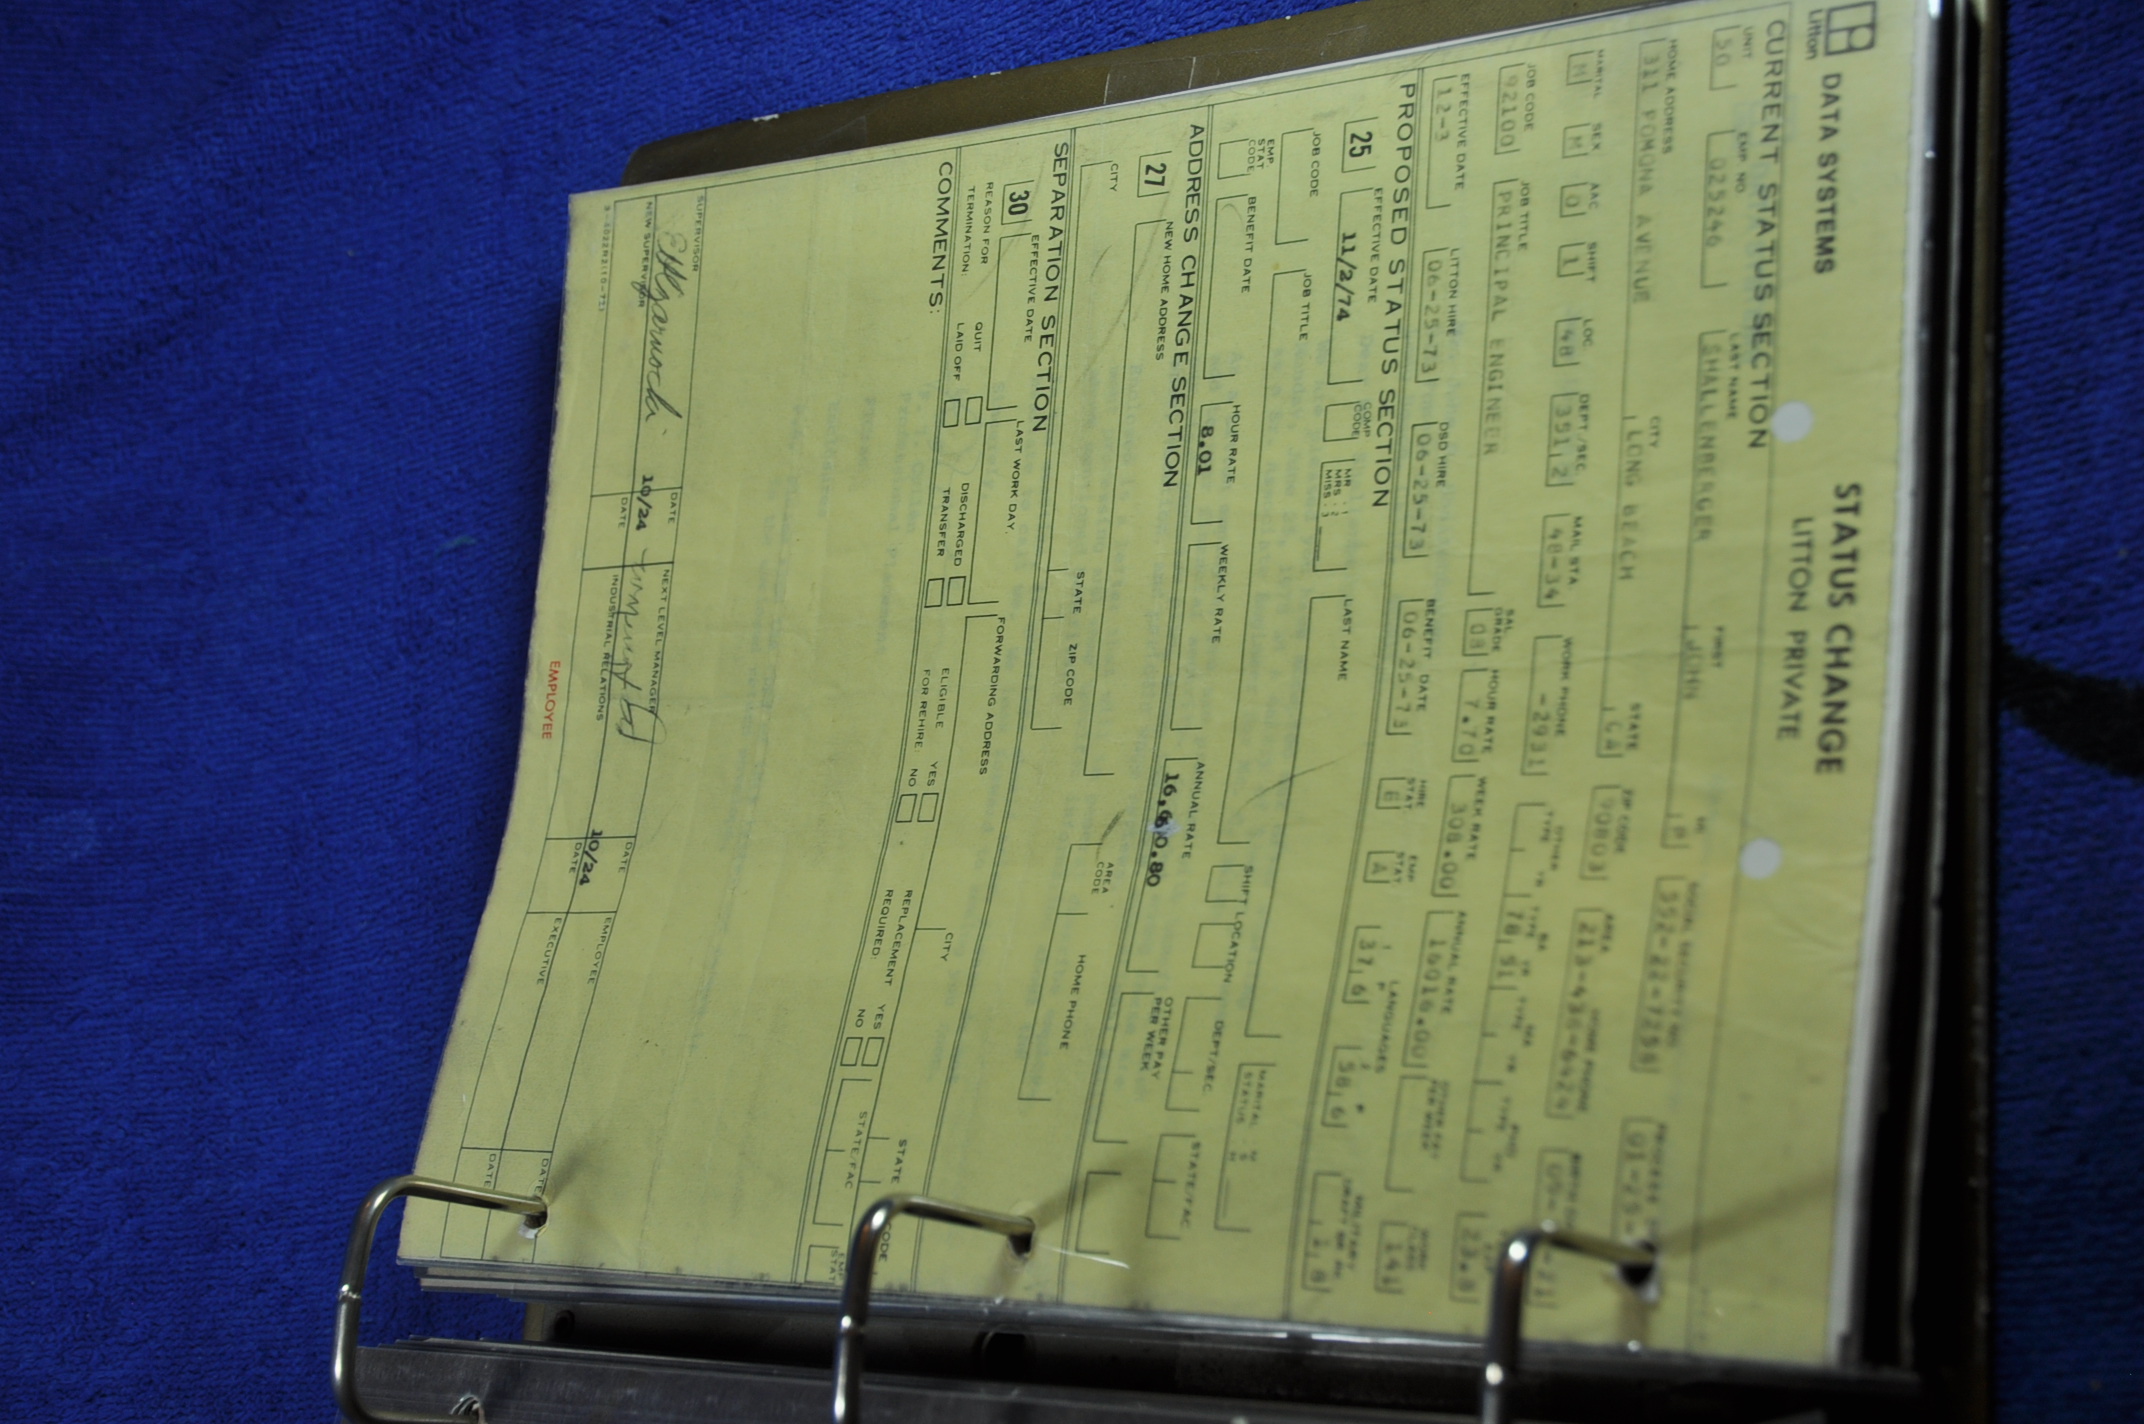 Litton DATA SYSTEMS
STATUS CHANGE
LITTON PRIVATE
CURRENT STATUS SECTION
UNIT EMP. NO LAST NAME FIRST
50 025246 SHALLENBERGER JOHN P
HOME ADDRESS CITY STATE ZIP CODE
311 POMONA AVENUE LONG BEACH CA 90803
MARITAL SEX AC SHIFT LOC. DEPT./SEC. MAIL STA. WORK PHONE AREA HOME PHONE
M M 0 1 48 351,2 48-34 -2931
JOB CODE JOB TITLE SAL. GRADE HOUR RATE WEEK RATE ANNUAL RATE
92100 PRINCIPAL ENGINEER 08 7.70 308.00 16016.00
EFFECTIVE DATE LITTON HIRE DSD HIRE BENEFIT DATE HIRE STAT. EMP STAT LANGUAGES
12-3 06-25-73 06-25-73 06-25-73 6 A 37,6 58,6
PROPOSED STATUS SECTION
25 EFFECTIVE DATE 11/2/74 COMP CODE MR :1 MRS :2 MISS :3 LAST NAME
JOB CODE JOB TITLE SHIFT LOCATION DEPT/SEC. MARITAL STATUS
EMP. STAT CODE BENEFIT DATE HOUR RATE WEEKLY RATE ANNUAL RATE OTHER PAY PER WEEK STATE/FAC
8.01 16,660.80
ADDRESS CHANGE SECTION
27 NEW HOME ADDRESS
CITY STATE ZIP CODE AREA CODE HOME PHONE
SEPARATION SECTION
30 EFFECTIVE DATE LAST WORK DAY FORWARDING ADDRESS CITY STATE CODE
REASON FOR TERMINATION: QUIT DISCHARGED ELIGIBLE FOR REHIRE: YES NO REPLACEMENT REQUIRED: YES NO STATE/FAC
LAID OFF TRANSFER
COMMENTS:
SUPERVISOR DATE NEXT LEVEL MANAGER DATE EMPLOYEE DATE
10/24 10/24
NEW SUPERVISOR DATE INDUSTRIAL RELATIONS DATE EXECUTIVE DATE
EMPLOYEE